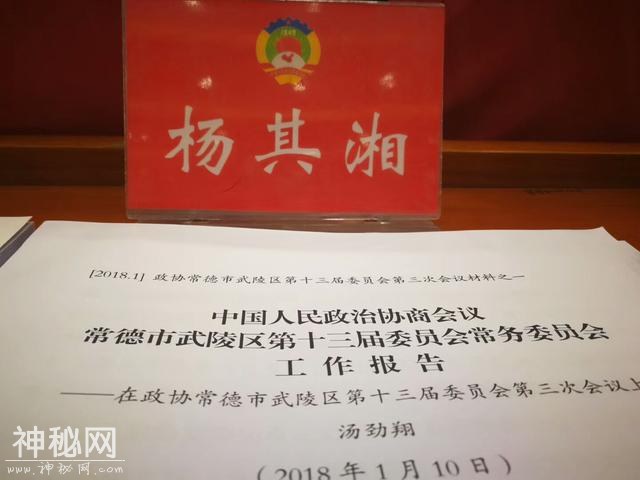 杨其湘
[2018.1] 政协常德市武陵区第十三届委员会第三次会议材料之一
中国人民政治协商会议
常德市武陵区第十三届委员会常务委员会
工作报告
——在政协常德市武陵区第十三届委员会第三次会议上
汤劲翔
(2018年1月10日)
神秘网
www.神秘网.com